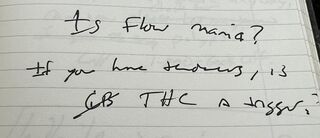 Is flow mania?
If you have tendencies, is
THC a trigger?